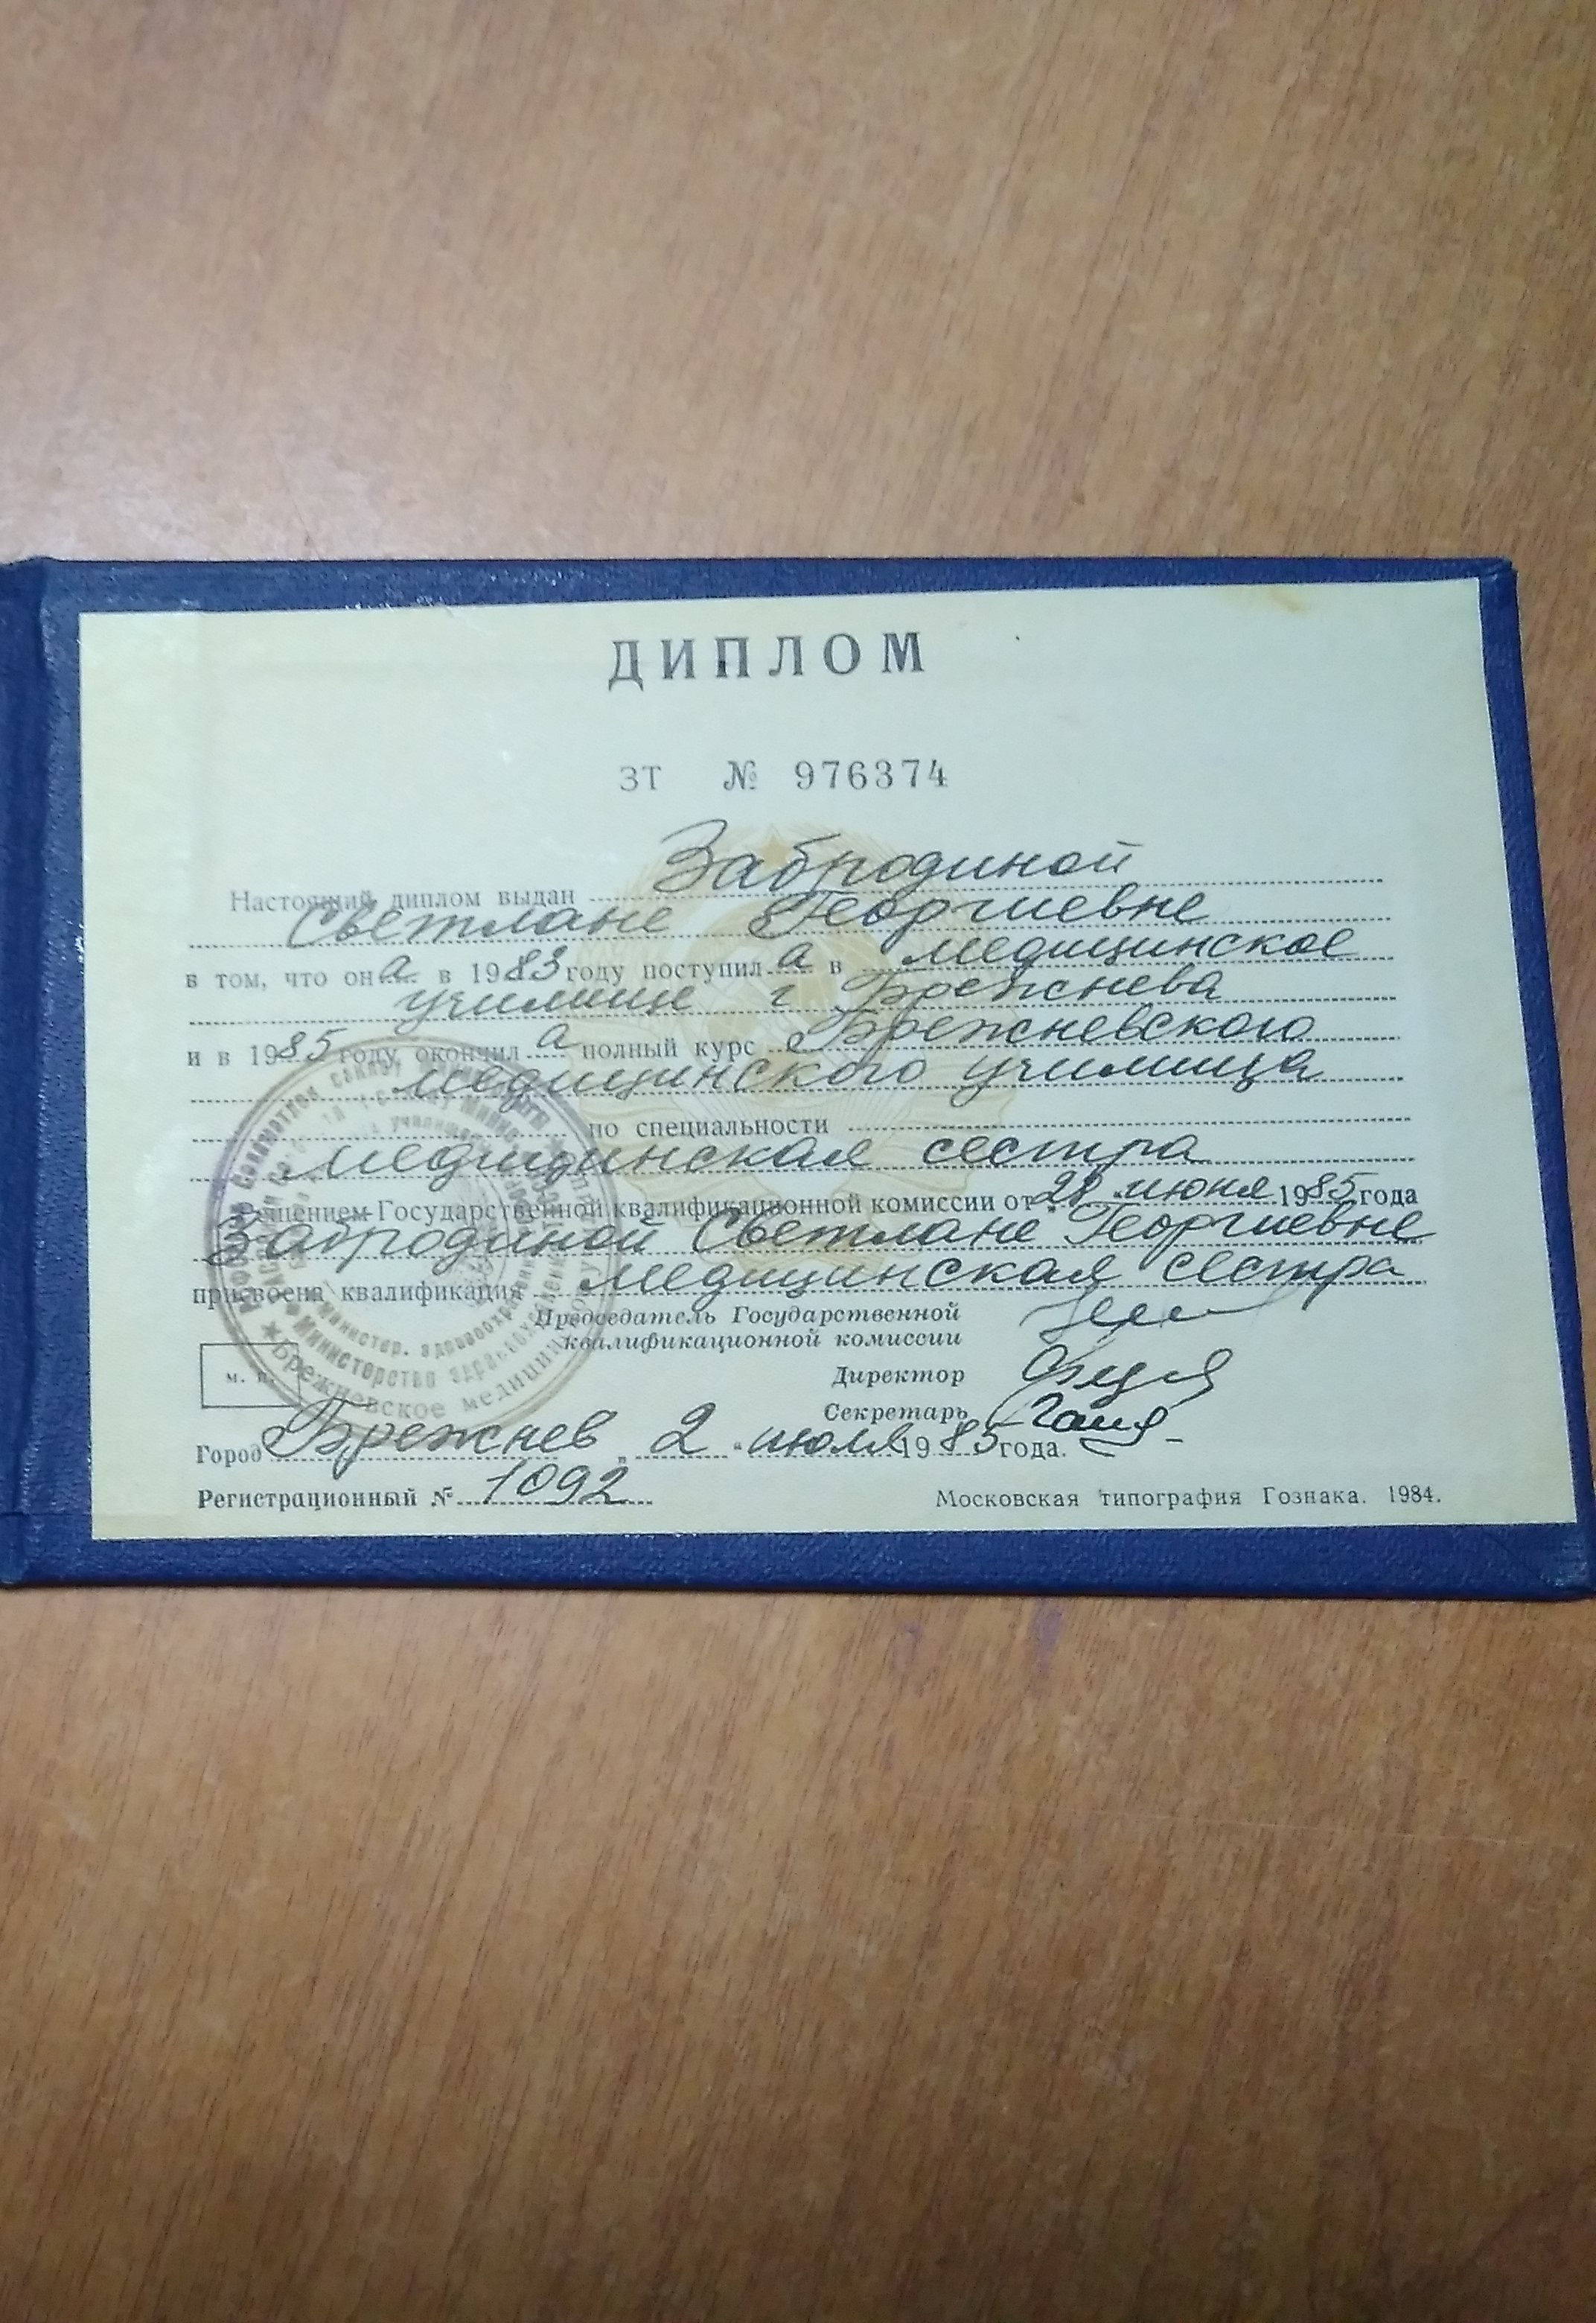 ДИПЛОМ
ЗТ № 976374
Настоящий диплом выдан Забродиной
Светлане Георгиевне
в том, что она в 1983 году поступила в медицинское
училище г Брежнева
и в 1985 году окончила полный курс Брежневского
медицинского училища
по специальности
медицинская сестра
Решением Государственной квалификационной комиссии от „28" июня 1985 года
Забродиной Светлане Георгиевне
присвоена квалификация медицинская сестра
Председатель Государственной
квалификационной комиссии
м. п.
Директор
Секретарь
Город Брежнев „2" июля 1985 года.
Регистрационный № 1092
Московская типография Гознака. 1984.
Брежневское медицинское
Министерство